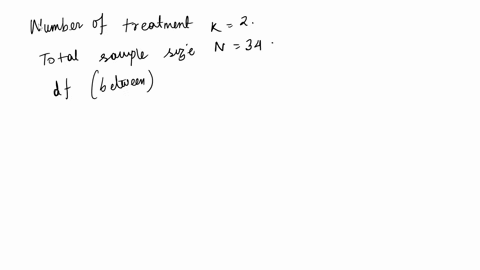 Number of treatment K = 2.
Total sample size N = 34.
df (between)